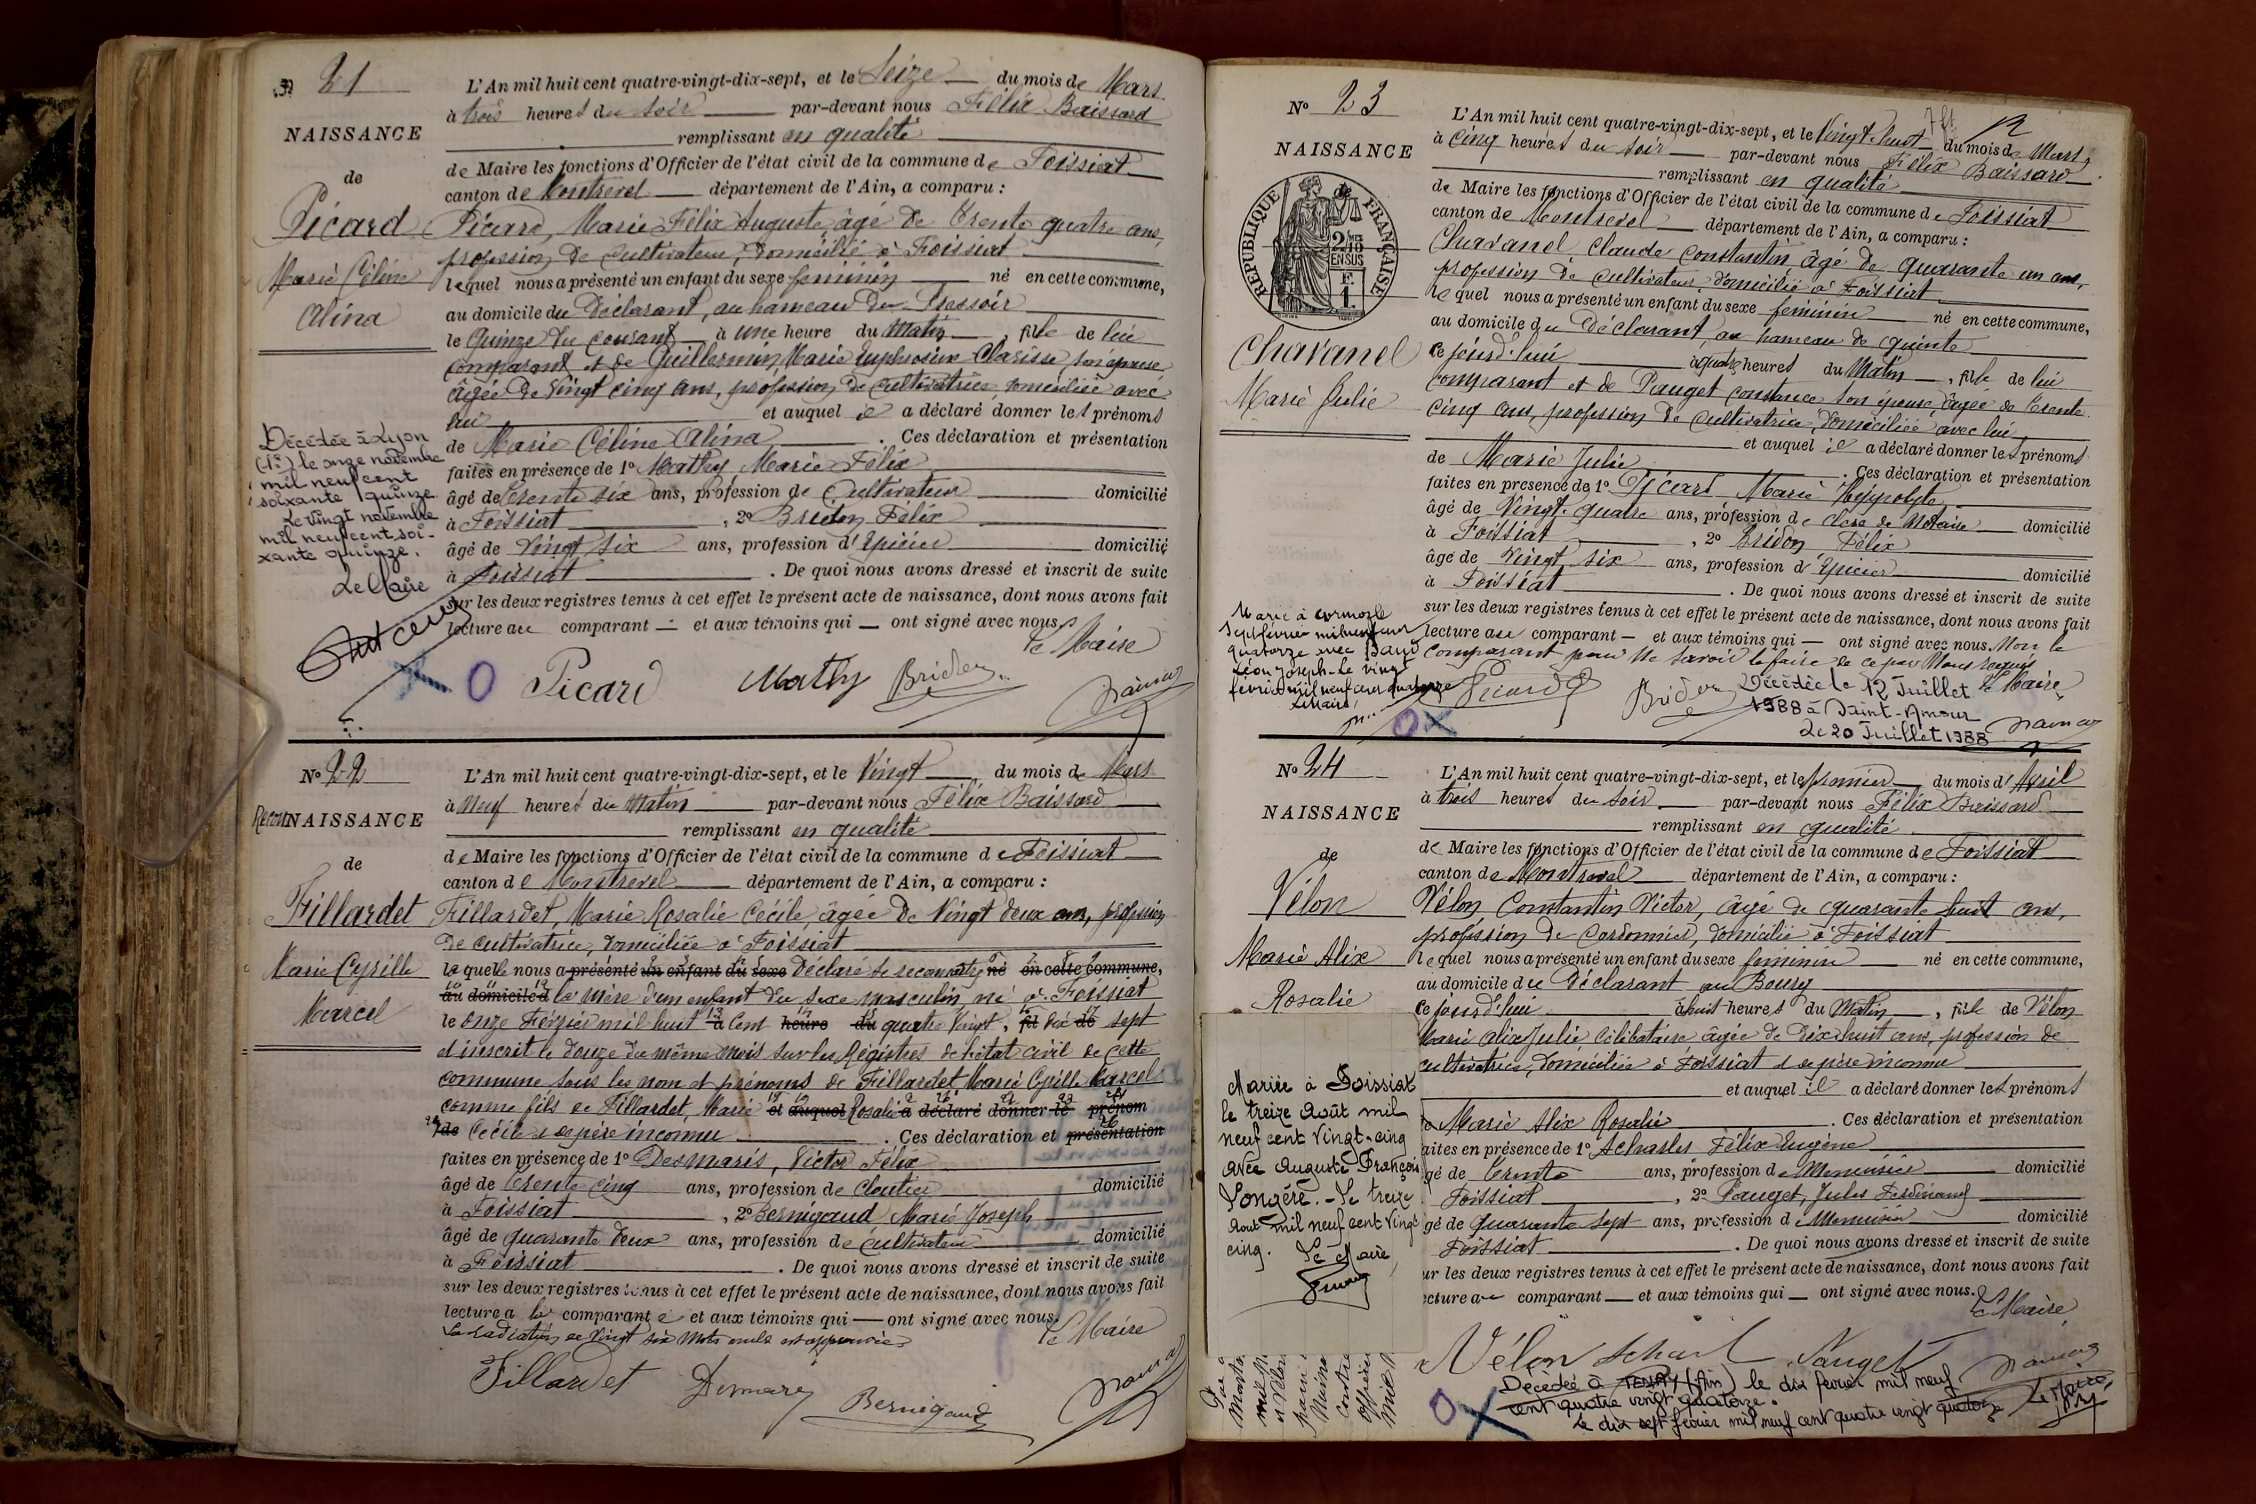 N° 21
NAISSANCE
de
Picard
Marie Céline
Alina
L'An mil huit cent quatre-vingt-dix-sept, et le Seize du mois de Mars
à trois heures du soir par-devant nous Félix Baissard
remplissant en qualité
de Maire les fonctions d'Officier de l'état civil de la commune de Foissiat
canton de Montrevel département de l'Ain, a comparu :
Picard, Marie Félix Auguste, âgé de trente quatre ans,
profession de cultivateur, domicilié à Foissiat
lequel nous a présenté un enfant du sexe féminin né en cette commune,
au domicile du Déclarant, au hameau du Pressoir
le Quinze du courant à une heure du Matin, fille de lui
comparant et de Guillermin, Marie Euphrosine Clarisse, son épouse
âgée de vingt cinq ans, profession de cultivatrice, domiciliée avec
lui et auquel il a déclaré donner les prénoms
de Marie Céline Alina. Ces déclaration et présentation
faites en présence de 1° Mathy, Marie Félix
âgé de trente six ans, profession de Cultivateur domicilié
à Foissiat, 2° Bridon Félix
âgé de vingt six ans, profession d'Epicier domicilié
à Foissiat. De quoi nous avons dressé et inscrit de suite
sur les deux registres tenus à cet effet le présent acte de naissance, dont nous avons fait
lecture au comparant et aux témoins qui ont signé avec nous.
Le Maire
Picard Mathy Bridon
Décédée à Lyon
(1er) le onze novembre
mil neuf cent
soixante quinze
Le vingt novembre
mil neuf cent soi-
xante quinze.
Le Maire
N° 22
Recon
NAISSANCE
de
Fillardet
Marie Cyrille
Marcel
L'An mil huit cent quatre-vingt-dix-sept, et le Vingt du mois de Mars
à Neuf heures du Matin par-devant nous Félix Baissard
remplissant en qualité
de Maire les fonctions d'Officier de l'état civil de la commune de Foissiat
canton de Montrevel département de l'Ain, a comparu :
Fillardet, Marie Rosalie Cécile, âgée de Vingt deux ans, profession
de cultivatrice, domiciliée à Foissiat
laquelle nous a présenté un enfant du sexe Déclaré se reconnaître né en cette commune,
au domicile d la mère d'un enfant du sexe masculin, né à Foissiat
le onze Février mil huit à cent heure du quatre vingt, fil dix de sept
et inscrit le douze du même mois sur les Régistres de l'état civil de cette
commune sous les nom et prénoms de Fillardet Marie Cyrille Marcel
comme fils de Fillardet, Marie et auquel Rosalie a déclaré donner le prénom
de Cécile et de père inconnu. Ces déclaration et présentation
faites en présence de 1° Desmaris, Victor Félix
âgé de trente cinq ans, profession de Cloutier domicilié
à Foissiat, 2° Bernigaud Marie Joseph
âgé de quarante deux ans, profession de cultivateur domicilié
à Foissiat. De quoi nous avons dressé et inscrit de suite
sur les deux registres tenus à cet effet le présent acte de naissance, dont nous avons fait
lecture a la comparante et aux témoins qui ont signé avec nous.
La radiation de vingt six mots nuls est approuvée
Le Maire
Fillardet Desmaris Bernigaud
N° 23
NAISSANCE
de
RÉPUBLIQUE FRANÇAISE
2/10 EN SUS
F. 1.
Chavanel
Marie Julie
L'An mil huit cent quatre-vingt-dix-sept, et le Vingt-huit du mois de Mars,
à Cinq heures du soir par-devant nous Félix Baissard
remplissant en qualité
de Maire les fonctions d'Officier de l'état civil de la commune de Foissiat
canton de Montrevel département de l'Ain, a comparu :
Chavanel, Claude Constantin âgé de quarante un ans,
profession de cultivateur, domicilié à Foissiat
lequel nous a présenté un enfant du sexe féminin né en cette commune,
au domicile du Déclarant, au hameau de Quinte
ce jourd'hui à quatre heures du Matin, fille de lui
comparant et de Pauget Constance son épouse, âgée de trente
cinq ans, profession de cultivatrice, domiciliée avec lui
et auquel il a déclaré donner les prénoms
de Marie Julie. Ces déclaration et présentation
faites en présence de 1° Picard Marie Hyppolyte
âgé de Vingt-quatre ans, profession de clerc de Notaire domicilié
à Foissiat, 2° Bridon Félix
âgé de vingt six ans, profession d'Epicier domicilié
à Foissiat. De quoi nous avons dressé et inscrit de suite
sur les deux registres tenus à cet effet le présent acte de naissance, dont nous avons fait
lecture au comparant et aux témoins qui ont signé avec nous. Non le
comparant pour ne savoir le faire de ce par Nous requis
Le Maire
Picard Bridon
Décédée le 12 Juillet
1988 à Saint-Amour
Le 20 Juillet 1988
Marié à Cormoz le
sept février mil neuf cent
quatorze avec Baud
Léon Joseph. Le vingt
février mil neuf cent quatorze
Le Maire
N° 24
NAISSANCE
de
Vélon
Marie Alix
Rosalie
L'An mil huit cent quatre-vingt-dix-sept, et le premier du mois d'Avril
à trois heures du soir par-devant nous Félix Baissard
remplissant en qualité
de Maire les fonctions d'Officier de l'état civil de la commune de Foissiat
canton de Montrevel département de l'Ain, a comparu :
Vélon Constantin Victor, âgé de quarante huit ans,
profession de Cordonnier, domicilié à Foissiat
lequel nous a présenté un enfant du sexe féminin né en cette commune,
au domicile du Déclarant au Bourg
ce jourd'hui à huit heures du Matin, fille de Vélon
Marie Alix Julie Célibataire âgée de Dix huit ans, profession de
cultivatrice, domiciliée à Foissiat et de père inconnu
et auquel il a déclaré donner les prénoms
de Marie Alix Rosalie. Ces déclaration et présentation
faites en présence de 1° Acharles Félix Eugène
âgé de trente ans, profession de Menuisier domicilié
Foissiat, 2° Pauget, Jules Ferdinand
gé de quarante sept ans, profession de Menuisier domicilié
Foissiat. De quoi nous avons dressé et inscrit de suite
ur les deux registres tenus à cet effet le présent acte de naissance, dont nous avons fait
ecture au comparant et aux témoins qui ont signé avec nous.
Le Maire,
Vélon Pauget
Mariée à Foissiat
le treize Août mil
neuf cent vingt-cinq
avec Auguste François
Pongére. - Le treize
Aout mil neuf cent vingt
cinq. Le Maire,
Décédée à TENAY (Ain) le dix février mil neuf
cent quatre vingt quatorze.
Le dix sept février mil neuf cent quatre vingt quatorze Le Maire,